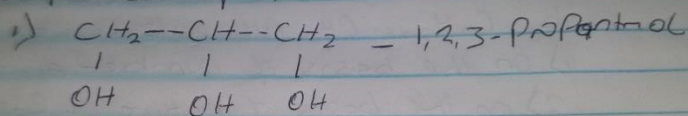 1) CH2--CH--CH2 – 1,2,3-Propantriol
| | |
OH OH OH